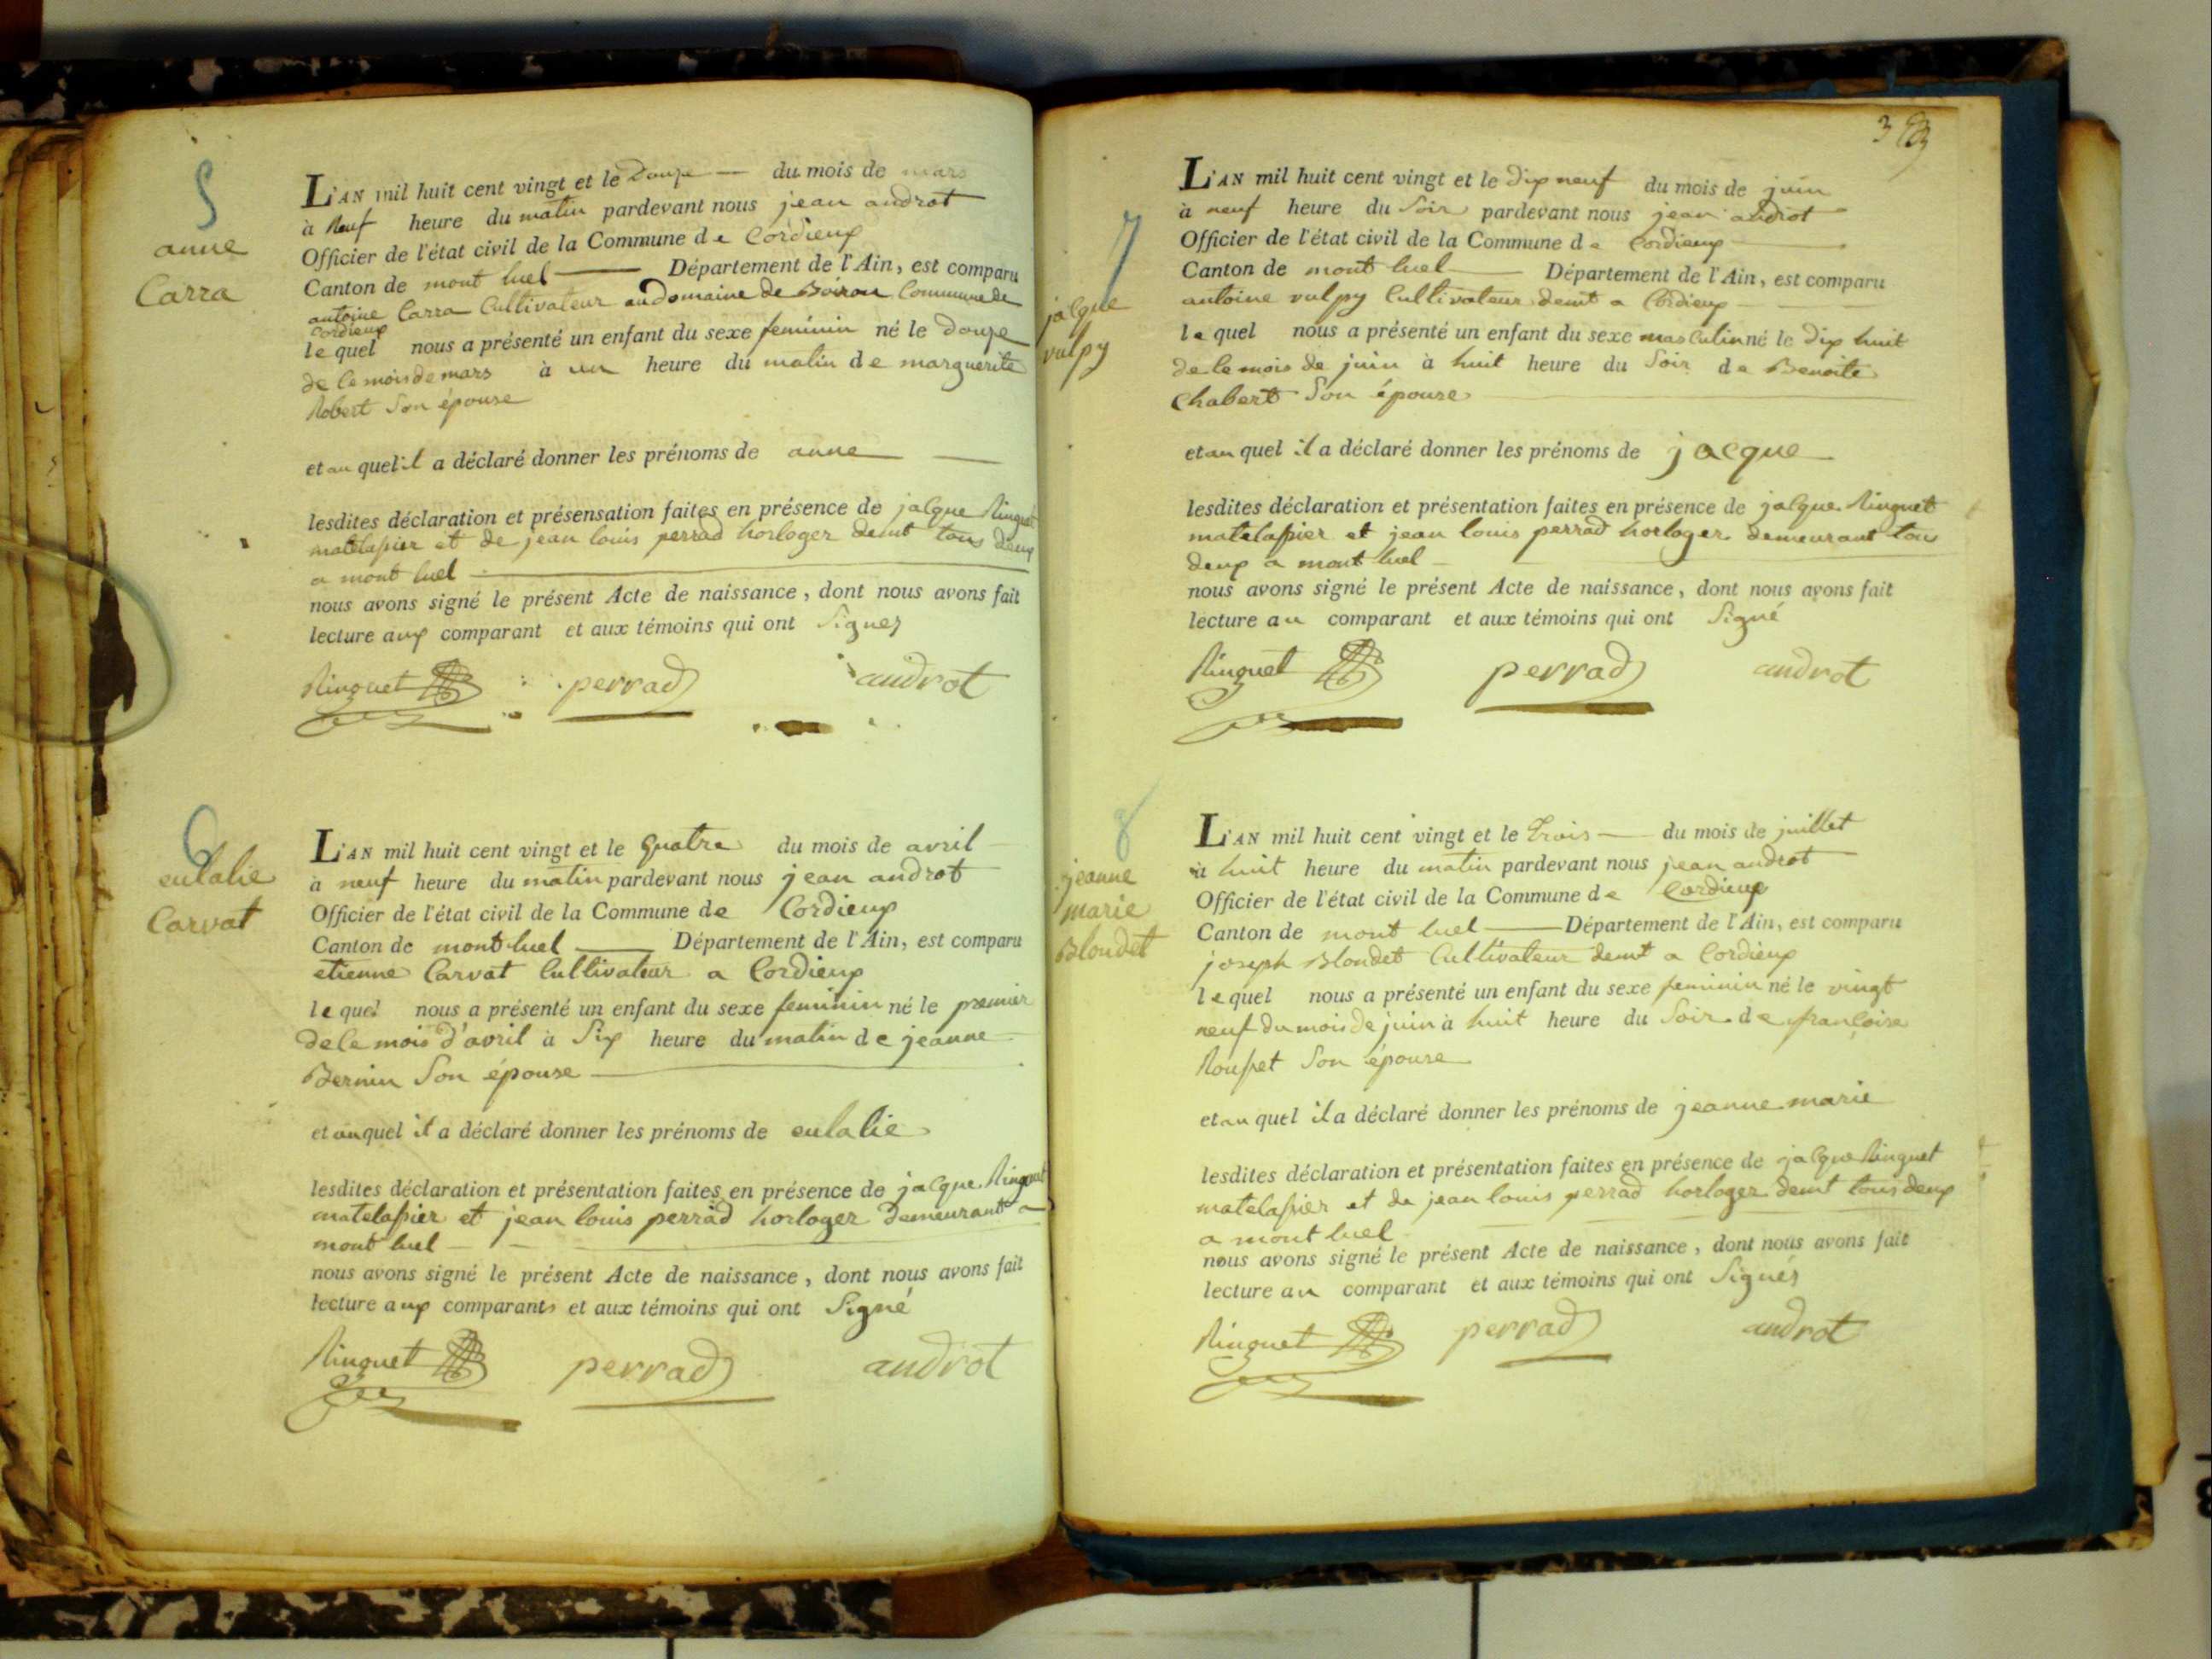 5
anne
Carra
L'AN mil huit cent vingt et le Douze du mois de mars
à neuf heure du matin pardevant nous jean androt
Officier de l'état civil de la Commune de Cordieux
Canton de mont luel Département de l'Ain, est comparu
antoine Carra Cultivateur au domaine de Boiron Commune de
Cordieux
lequel nous a présenté un enfant du sexe feminin né le douze
de le mois de mars à un heure du matin de marguerite
Robert Son épouse
et au quel il a déclaré donner les prénoms de anne
lesdites déclaration et présensation faites en présence de jacque Ringuet
matelassier et de jean louis perrad horloger demt tous deux
a mont luel
nous avons signé le présent Acte de naissance, dont nous avons fait
lecture aux comparant et aux témoins qui ont Signez
Ringuet perrad androt
6
eulalie
Carvat
L'AN mil huit cent vingt et le quatre du mois de avril
à neuf heure du matin pardevant nous jean androt
Officier de l'état civil de la Commune de Cordieux
Canton de mont luel Département de l'Ain, est comparu
etienne Carvat Cultivateur a Cordieux
lequel nous a présenté un enfant du sexe feminin né le premier
de le mois d'avril à Six heure du matin de jeanne
Bernin Son épouse
et auquel il a déclaré donner les prénoms de eulalie
lesdites déclaration et présentation faites en présence de jacque Ringuet
matelassier et jean louis perrad horloger demeurant a
mont luel
nous avons signé le présent Acte de naissance, dont nous avons fait
lecture aux comparants et aux témoins qui ont Signé
Ringuet perrad androt
3
7
jacque
vulpy
L'AN mil huit cent vingt et le dix neuf du mois de juin
à neuf heure du Soir pardevant nous jean androt
Officier de l'état civil de la Commune de Cordieux
Canton de mont luel Département de l'Ain, est comparu
antoine vulpy Cultivateur demt a Cordieux
lequel nous a présenté un enfant du sexe masculin né le dix huit
de le mois de juin à huit heure du Soir de Benoite
Chabert Son épouse
et au quel il a déclaré donner les prénoms de jacque
lesdites déclaration et présentation faites en présence de jacque Ringuet
matelassier et jean louis perrad horloger demeurant tous
deux a mont luel
nous avons signé le présent Acte de naissance, dont nous avons fait
lecture au comparant et aux témoins qui ont Signé
Ringuet perrad androt
8
jeanne
marie
Blondet
L'AN mil huit cent vingt et le Trois du mois de juillet
à huit heure du matin pardevant nous jean androt
Officier de l'état civil de la Commune de Cordieux
Canton de mont luel Département de l'Ain, est comparu
joseph Blondet Cultivateur demt a Cordieux
lequel nous a présenté un enfant du sexe feminin né le vingt
neuf du mois de juin à huit heure du Soir de françoise
Rousset Son épouse
et au quel il a déclaré donner les prénoms de jeanne marie
lesdites déclaration et présentation faites en présence de jacque Ringuet
matelassier et de jean louis perrad horloger demt tous deux
a mont luel
nous avons signé le présent Acte de naissance, dont nous avons fait
lecture au comparant et aux témoins qui ont Signés
Ringuet perrad androt